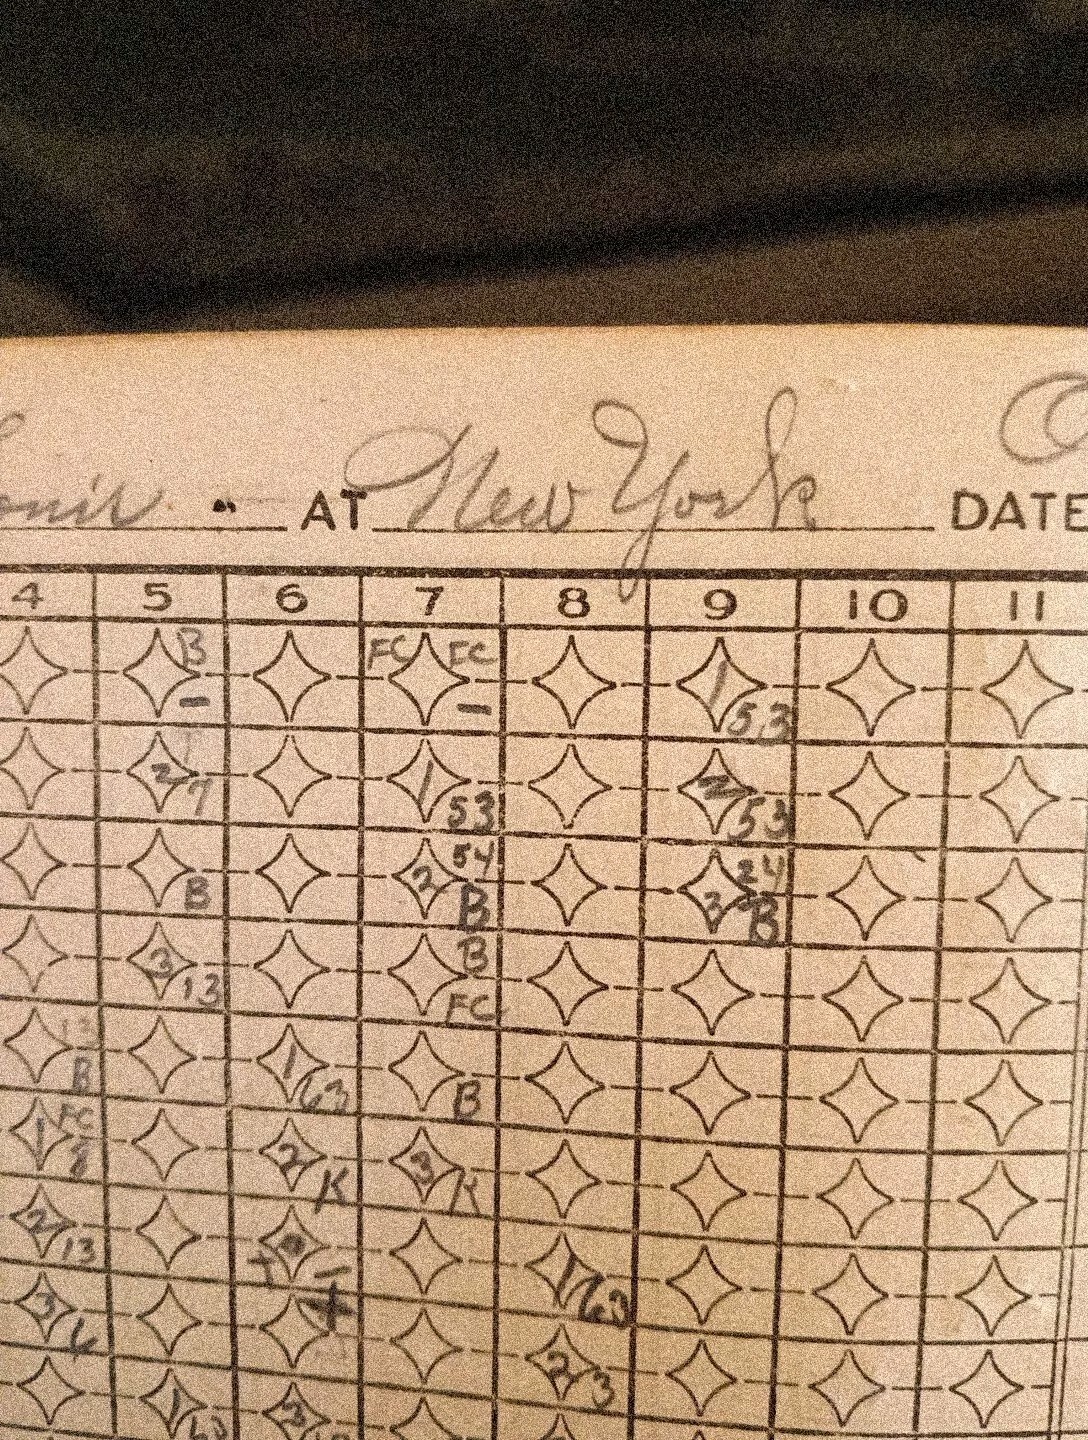 AT New York DATE
4 5 6 7 8 9 10 11
B FC FC 1
- - 53
2 7 1 53 2 53
B 2 54 B 3 24 B
3 13 B FC
13 B 1 63 B
1 FC 8 2 K 3 K
2 13 - 1 63
3 6 2 3
1 63 3